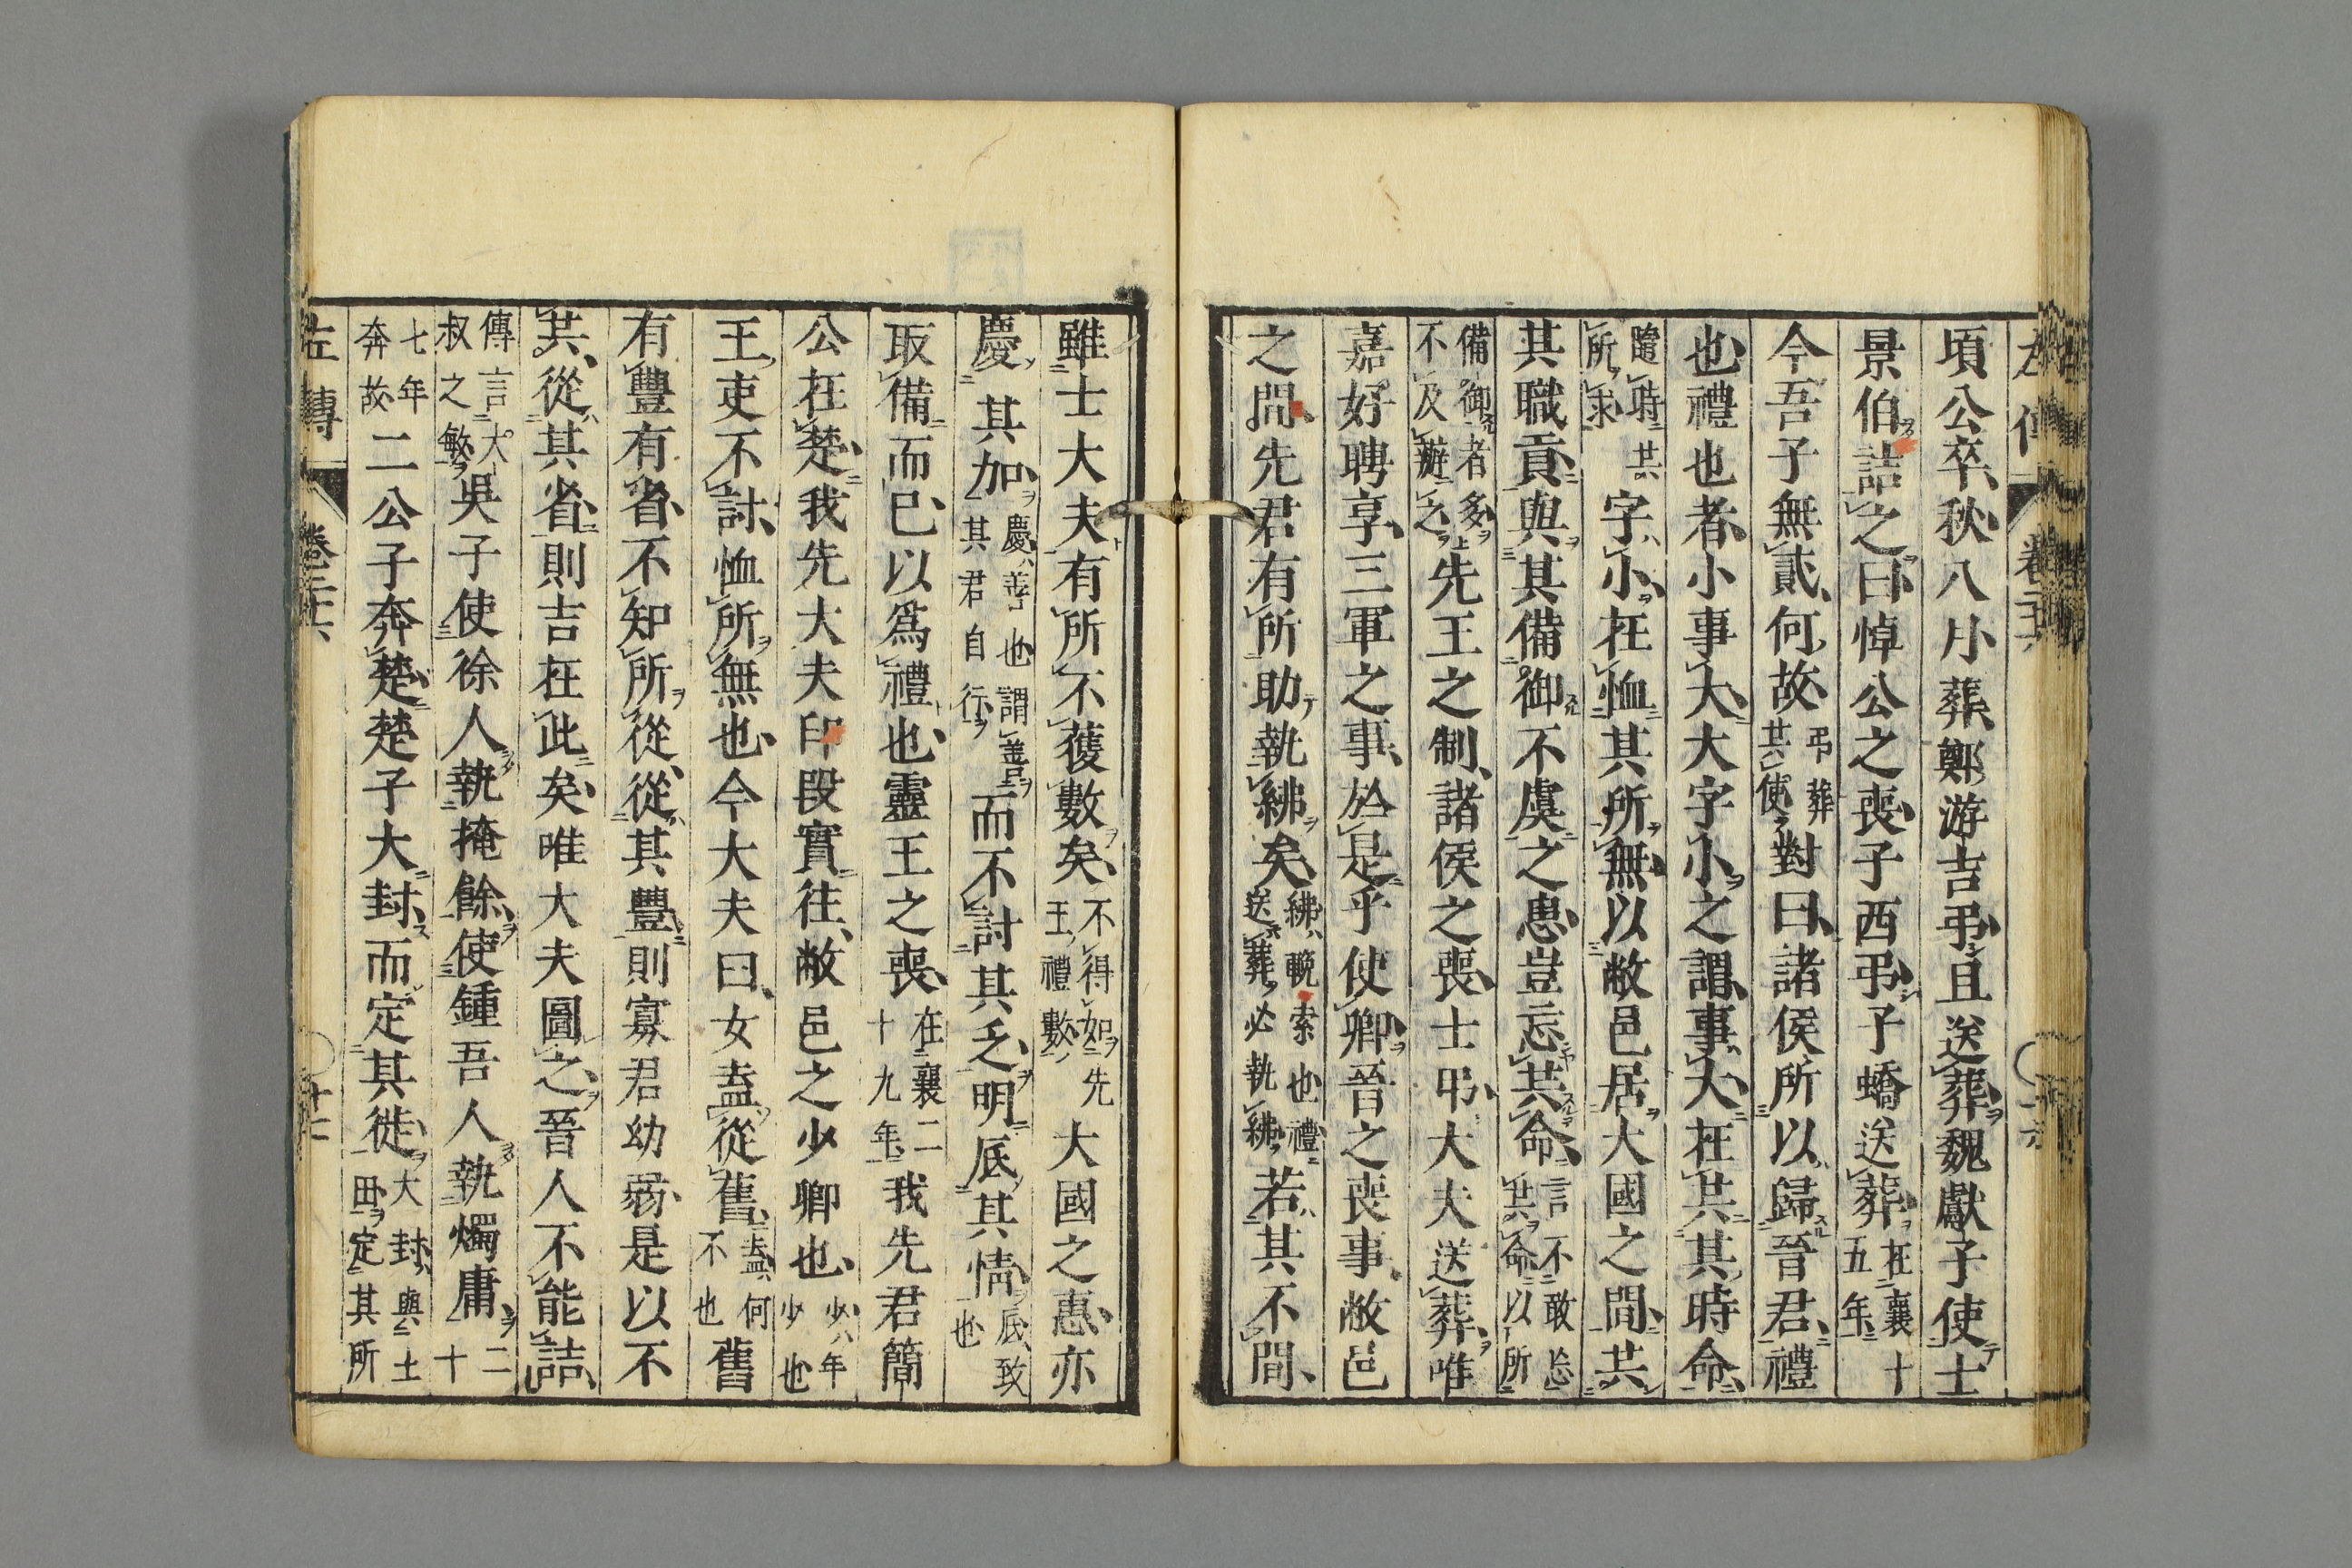 頃公卒秋八月葬鄭游吉弔且送葬魏獻子使士
景伯詰之曰悼公之喪子西弔子蟜送葬在襄十五年
今吾子無貳何故弔葬共使對曰諸侯所以歸晉君禮
也禮也者小事大大字小之謂事大在共其時命
隨時共所求字小在恤其所無以敝邑居大國之間共
其職貢與其備御不虞之患豈忘共命言不敢忘共命以所
備御者多不及辦之先王之制諸侯之喪士弔大夫送葬唯
嘉好聘享三軍之事於是乎使卿晉之喪事敝邑
之間先君有所助執紼矣紼輓索也禮送葬必執紼若其不間
雖士大夫有所不獲數矣不得如先王禮數大國之惠亦
慶其加慶善也謂善其君自行而不討其乏明底其情底致也
取備而已以爲禮也靈王之喪在襄二十九年我先君簡
公在楚我先大夫印段實往敝邑之少卿也少年少也
王吏不討恤所無也今大夫曰女盍從舊盍何不也舊
有豐有省不知所從從其豐則寡君幼弱是以不
共從其省則吉在此矣唯大夫圖之晉人不能詰
傳言大叔之敏吳子使徐人執掩餘使鍾吾人執燭庸二十
七年奔故二公子奔楚楚子大封而定其徙大封與土田定其所
左傳 卷二十六 十七